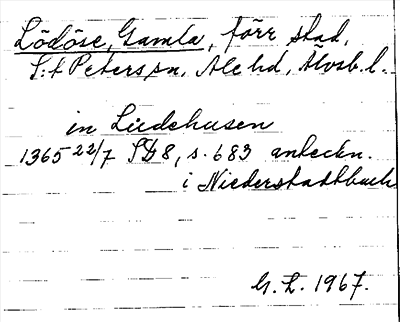 Lödöse, Gamla, förr stad,
S:t Peters sn, Ale hd, Älvsb. l.
in Liidehusen
1365 22/7 SD 8, s. 683 anteckn.
i Niederstadtbuch
G. L. 1967.